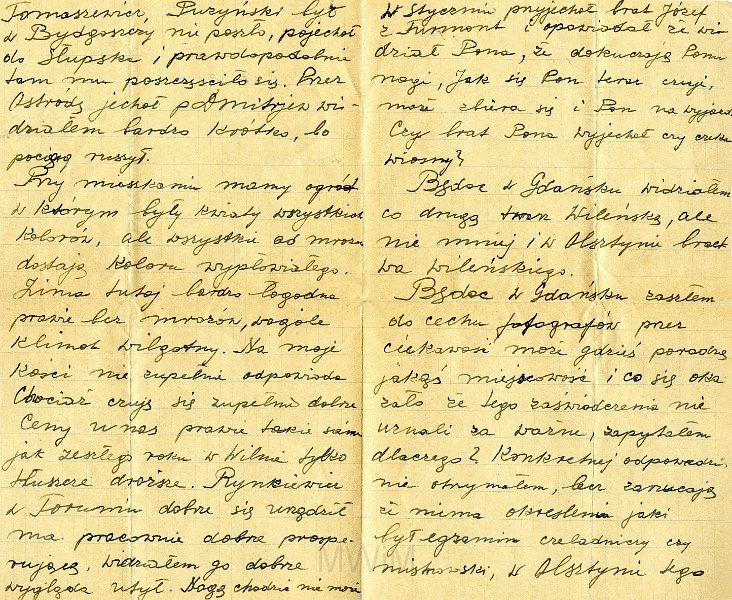 Tomaszewicz, Puzyński był
w Bydgoszczy nie poszło, pojechał
do Słupska i prawdopodobnie
tam mu poszczęściło się. Przez
Ostródę jechał p Dmitrjew wi-
działem bardzo krótko, bo
pociąg ruszył.
Przy mieszkaniu mamy ogród
w którym były kwiaty wszystkich
kolorów, ale wszystkie od mrozu
dostają koloru wypłowiałego.
Zima tutaj bardzo łagodna
prawie bez mrozów, wogóle
klimat wilgotny. Na moje
kości nie zupełnie odpowiada
Chociaż czuję się zupełnie dobrze
Ceny u nas prawie takie same
jak zeszłego roku w Wilnie tylko
tłuszcze droższe. Rynkiewicz
w Toruniu dobrze się urządził
ma pracownie dobrze prospe-
rującą, widziałem go dobrze
wygląda utył. Nogą chodzić nie może
W styczniu przyjechał brat Józef
z Turmont i opowiadał że wi-
dział Pana, że dokuczają Panu
nogi, Jak się Pan teraz czuje,
może zbiera się i Pan na wyjazd.
Czy brat Pana wyjechał czy czeka
wiosny?
Będąc w Gdańsku widziałem
co drugą twarz Wileńską, ale
nie mniej i w Olsztynie bract
wa wileńskiego.
Będąc w Gdańsku zaszłem
do cechu fotografów przez
ciekawość może gdzieś poradzą
jakąś miejscowość i co się oka
zało że tego zaświadczenia nie
uznali za ważne, zapytałem
dlaczego? Konkretnej odpowiedzi,
nie otrzymałem, lecz zarzucają
że niema określenia jaki
był egzamin czeladniczy czy
mistrowski, w Olsztynie tego
MWM